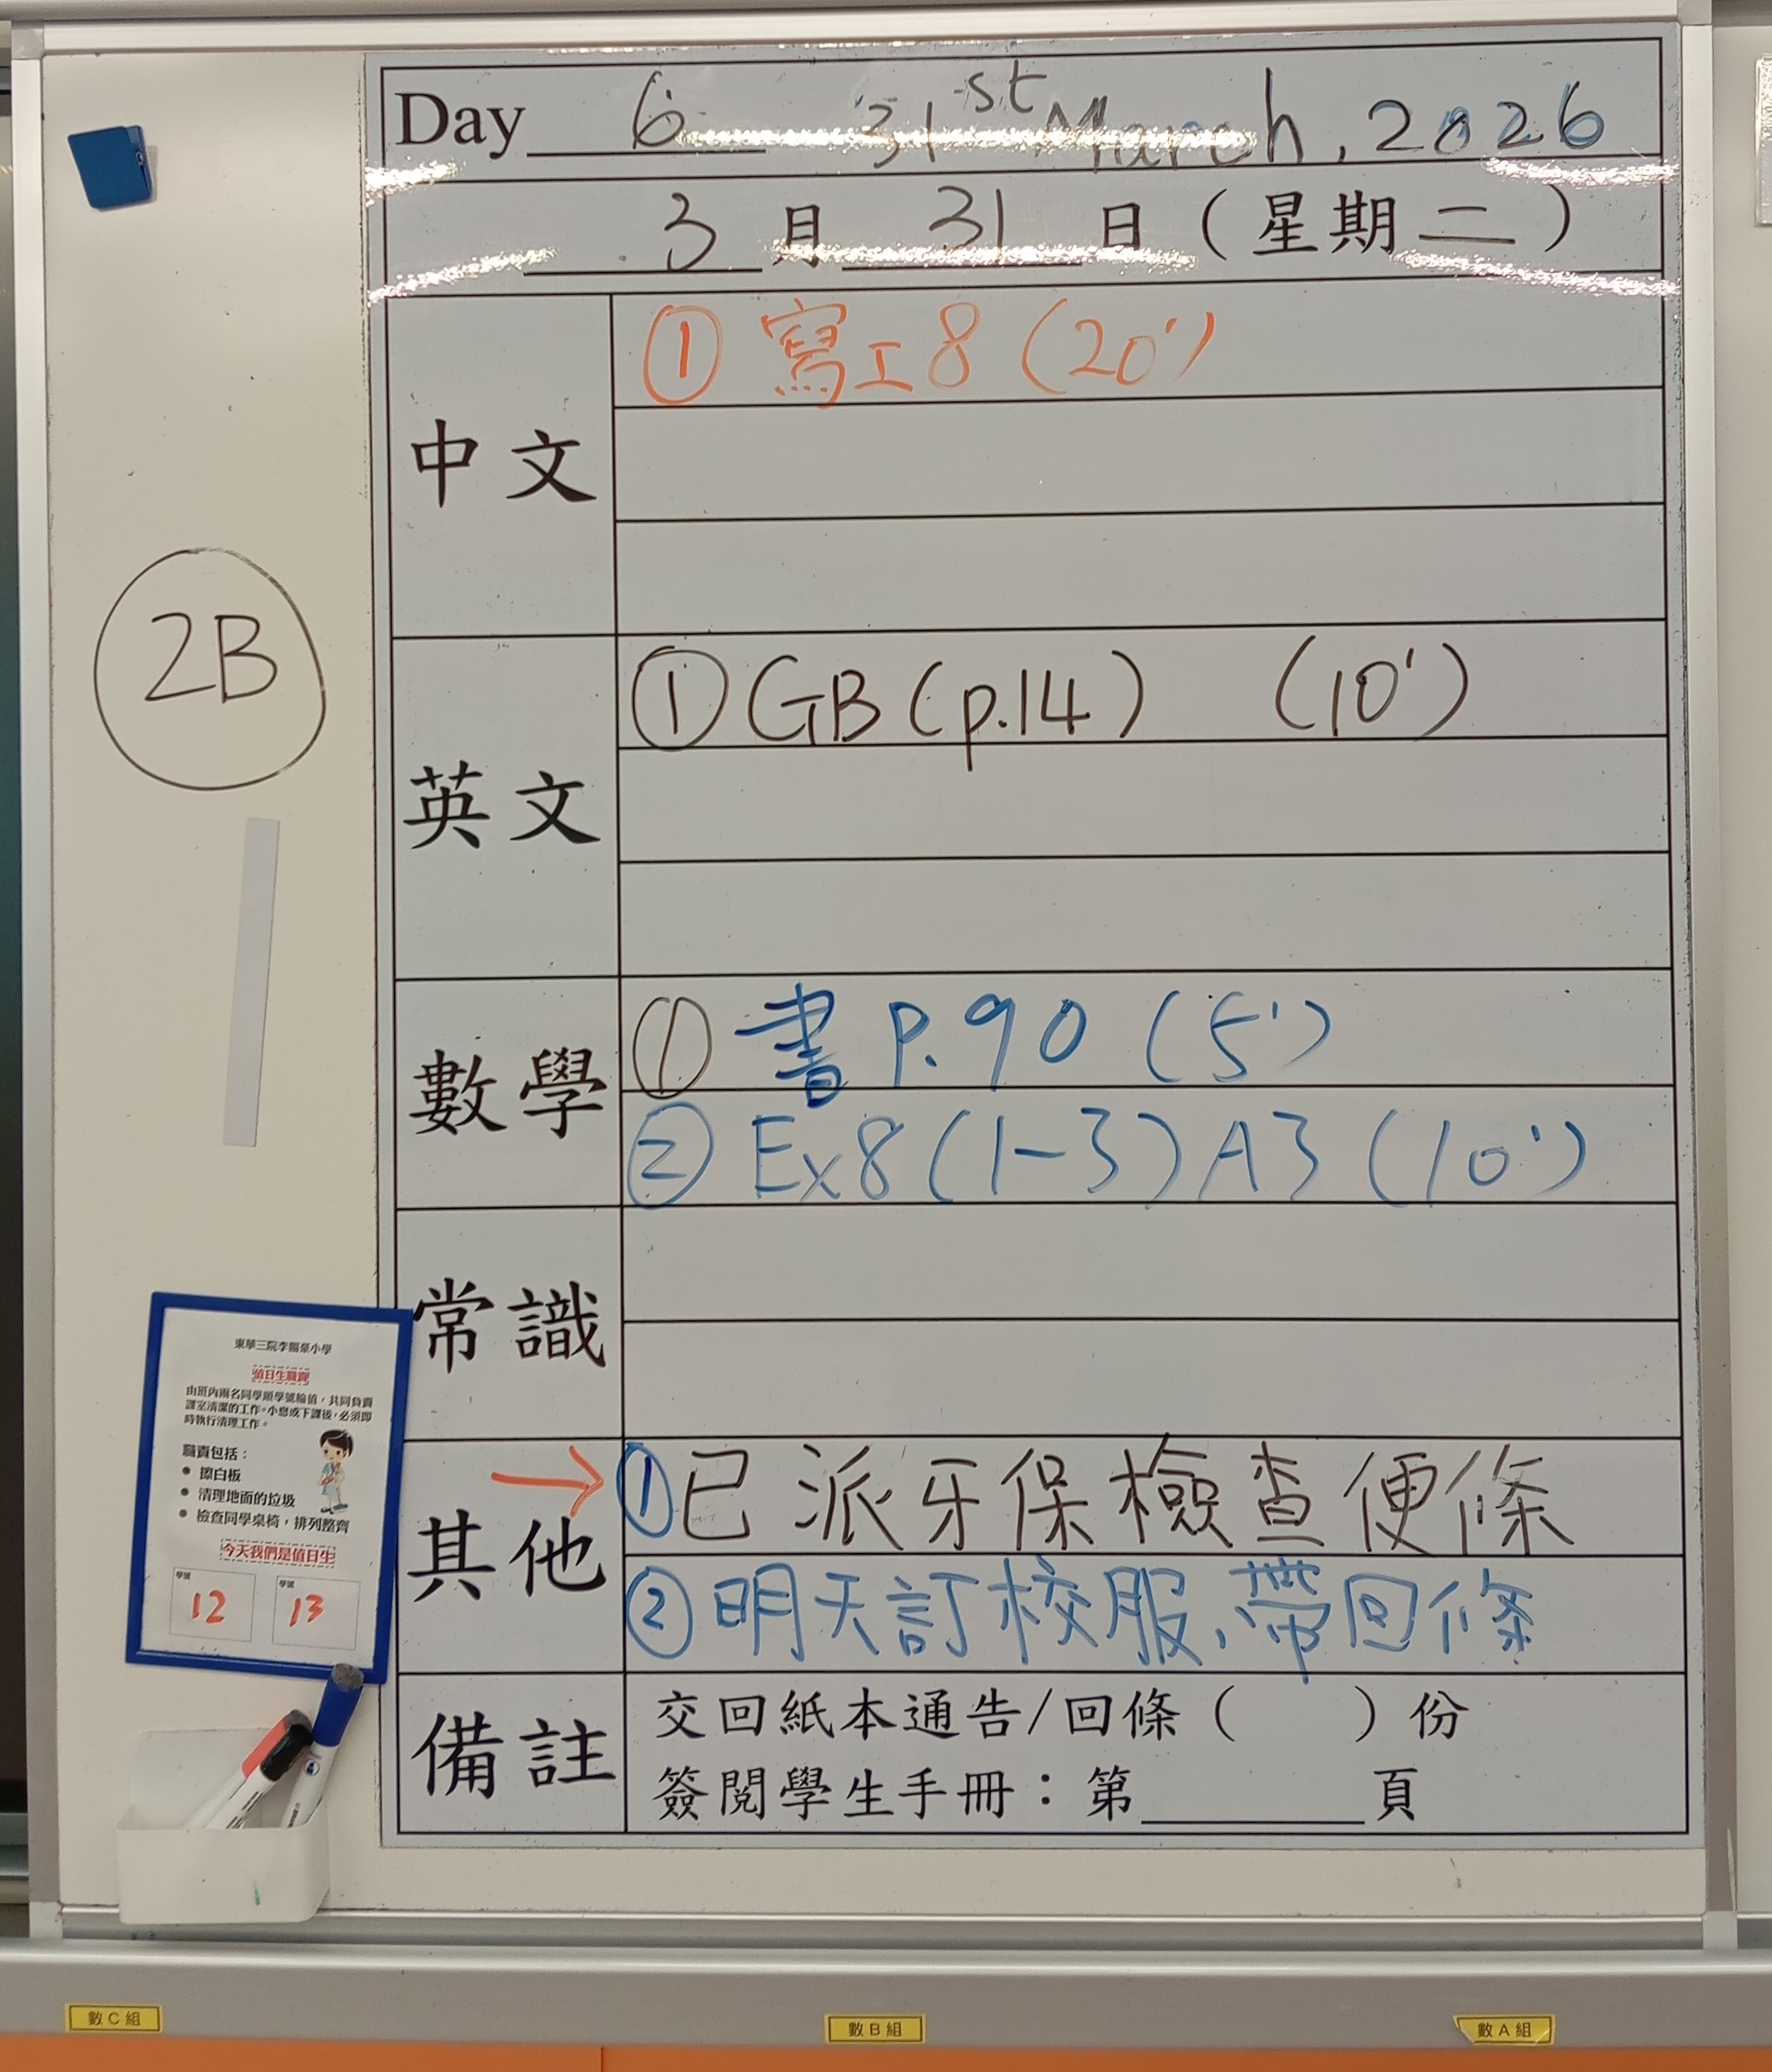 Day 6 31st March, 2026
3 月 31 日 (星期二)
中文
① 寫工8 (20')
英文
① GB (p.14) (10')
數學
① 書 P.90 (5')
② Ex8 (1-3) A3 (10')
常識
其他
→ ① 已派牙保檢查便條
② 明天訂校服,帶回條
備註
交回紙本通告/回條( )份
簽閱學生手冊:第______頁
2B
東華三院李賜豪小學
值日生職責
由班內兩名同學順學號輪值,共同負責
課室清潔的工作。小息或下課後,必須即
時執行清理工作。
職責包括:
● 擦白板
● 清理地面的垃圾
● 檢查同學桌椅,排列整齊
今天我們是值日生
學號 學號
12 13
數C組
數B組
數A組